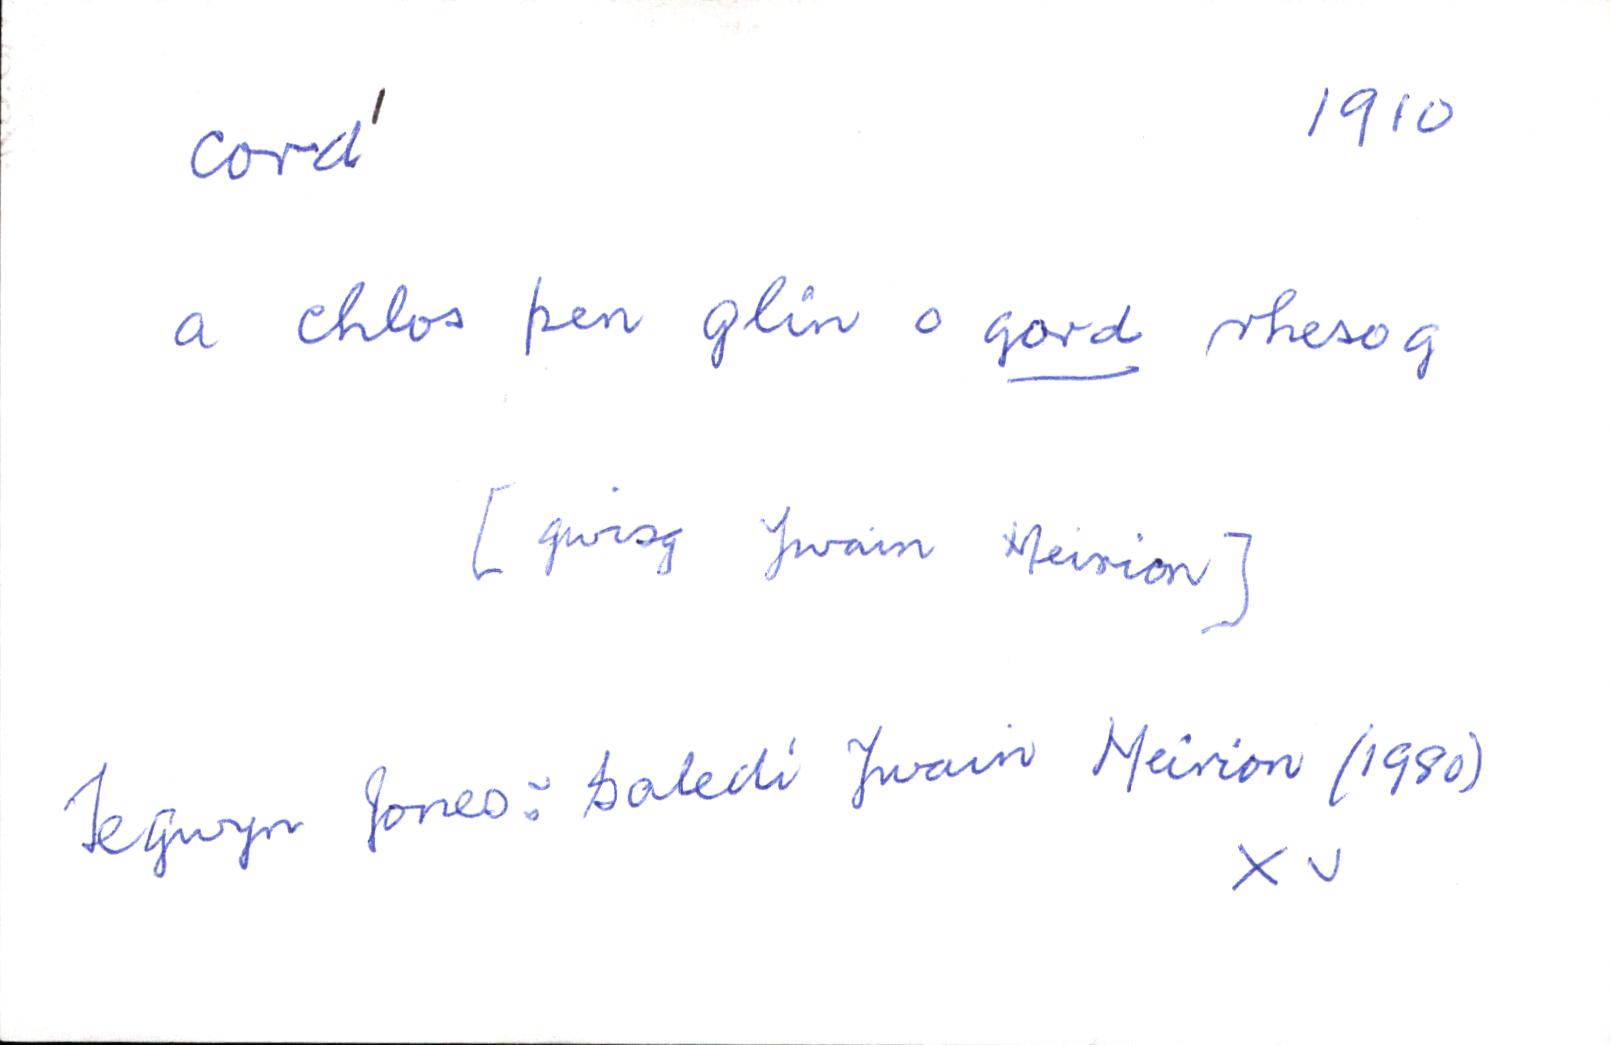 cord¹ 1910
a chlos pen glin o gord rhesog
[gwisg Ywain Meirion]
Tegwyn Jones: Baledi Ywain Meirion (1980)
XV